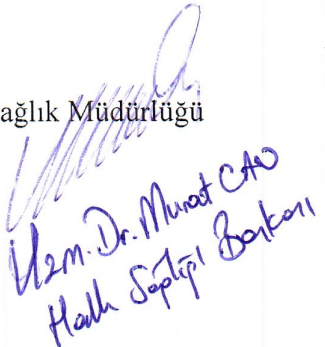 ağlık Müdürlüğü
Uzm. Dr. Murat CAN
Halk Sağlığı Başkanı